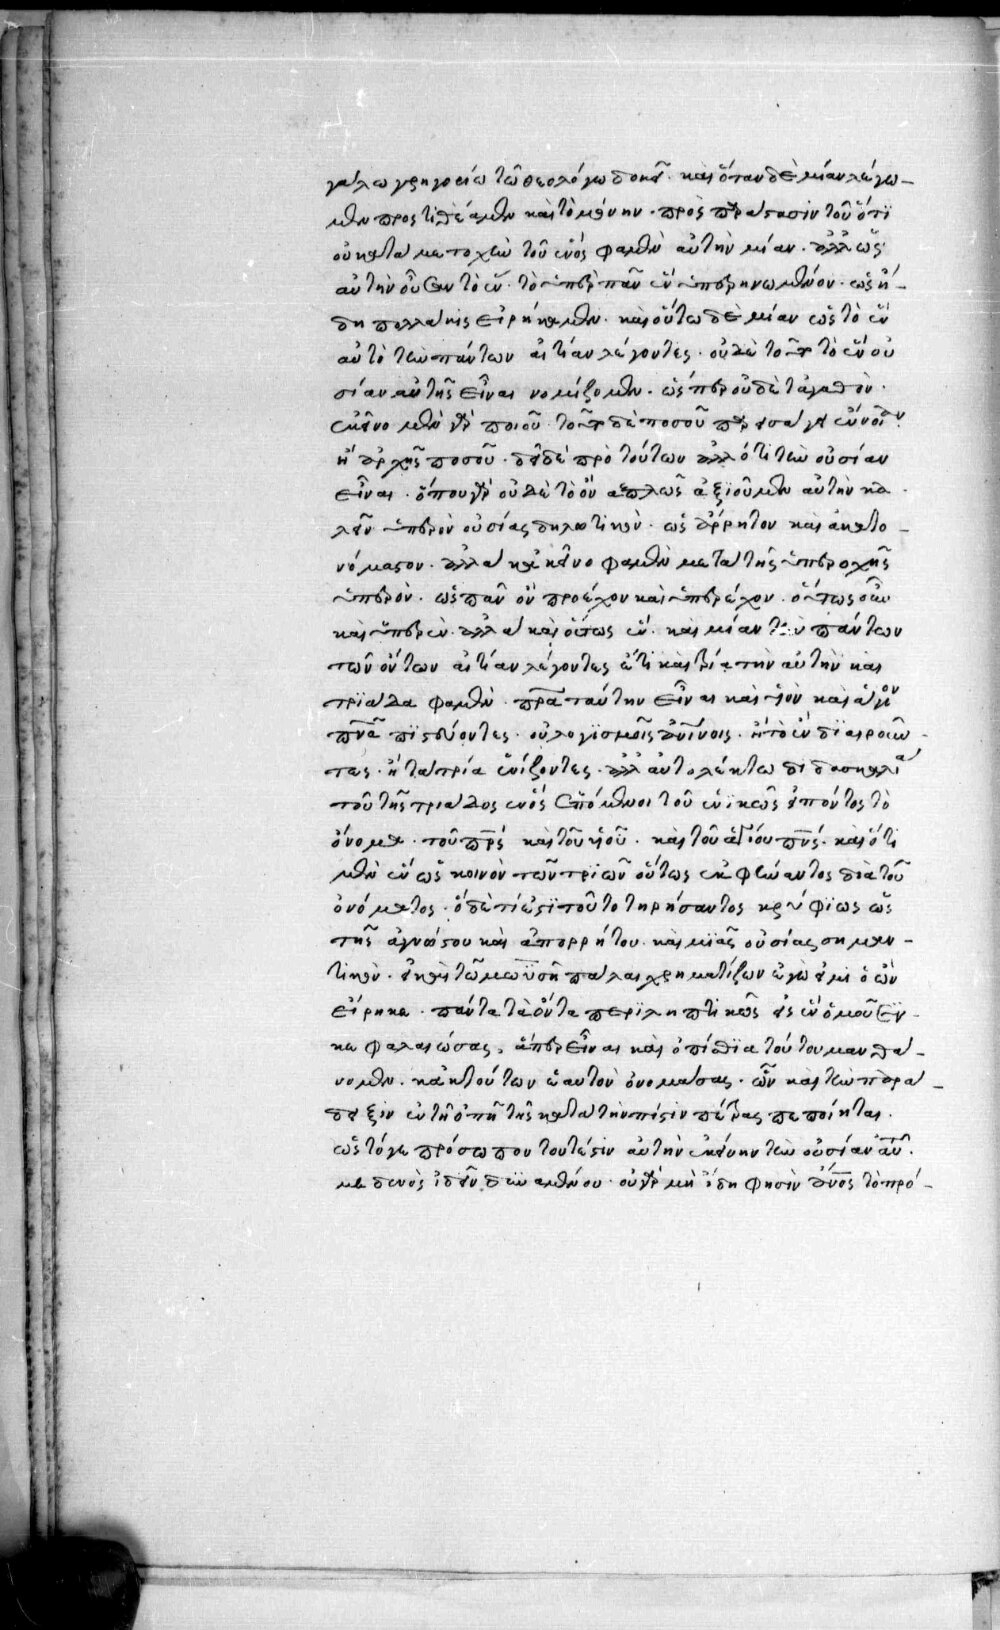 γάλω γρηγορίω τῶ θεολόγω δοκεῖ· καὶ ὅταν δὲ μίαν λέγω-
μεν προστιθέαμεν καὶ τὸ μόνην· πρὸς παράστασιν τοῦ ὅτι
οὐ κατὰ μετοχὴν τοῦ ἑνός φαμὲν αὐτὴν μίαν· ἀλλ' ὡς
αὐτὴν οὖσαν τὸ ἕν· τὸ ὑπὲρ πᾶν ἓν ὑπερηνωμένον· ὡς ἤ-
δη πολλάκις εἰρήκαμεν· καὶ οὕτω δὲ μίαν ὡς τὸ ἓν
αὐτὸ τῶν πάντων αἰτίαν λέγοντες· οὐδὲ τοῦτο τὸ ἓν οὐ
σίαν αὐτῆς εἶναι νομίζομεν· ὥσπερ οὐδὲ τἀγαθὸν·
ἐκεῖνο μὲν γὰρ ποιοῦ· τοῦτο δὲ ποσοῦ
ἢ ἀρχῆς ποσοῦ· δεῖ δὲ πρὸ τούτων ἄλλό τι τὴν οὐσίαν
εἶναι· ὅπου γὰρ οὐδὲ τὸ ὂν ἁπλῶς ἀξιοῦμεν αὐτὴν κα-
λεῖν ὑπερὸν οὐσίας δηλωτικὸν· ὡς ἄρρητον καὶ ἀκατο-
νόμαστον· ἀλλὰ κἀκεῖνο φαμὲν μετὰ τῆς ὑπεροχῆς
ὑπερὸν· ὡς πᾶν ὂν προέχον καὶ ὑπερέχον· οὕτως οὖν
καὶ ὑπερὲν· ἀλλὰ καὶ οὕτως ἓν· καὶ μίαν τῶν πάντων
τῶν ὄντων αἰτίαν λέγοντες ἔτι καὶ τρία τὴν αὐτὴν καὶ
τριάδα φαμὲν· πρα ταύτην εἶναι καὶ υἱὸν καὶ ἅγιον
πνα πιστεύοντες· οὐ λογισμοῖς ἀνίνοις· ἢ τὸ ἓν διαιροῦν-
τες· ἢ τὰ τρία ἑνίζοντες· ἀλλ' αὐτολέκτω διδασκαλία
τοῦ τῆς τριάδος ἑνὸς ἑπόμενοι τοῦ ἑνικῶς εἰπόντος τὸ
ὄνομα· τοῦ πρς καὶ τοῦ υἱοῦ· καὶ τοῦ ἁγίου πνς· καὶ ὅτι
μὲν ἓν ὡς κοινὸν τῶν τριῶν οὕτως ἐκφήναντος διὰ τοῦ
ὀνόματος· ὃ δὲ τί ἐστι τοῦτο τηρήσαντος κρυφίως ὡς
τῆς ἀγνώστου καὶ ἀπορρήτου καὶ μιᾶς οὐσίας σημαν-
τικὸν· ἐκεῖ τῶ μωϋσῆ πάλαι χρηματίζων ἐγώ εἰμι ὁ ὢν
εἴρηκα· πάντα τὰ ὄντα περιληπτικῶς εἰς ἓν ὁμοῦ ἐγ-
κεφαλαιώσας· ἅπερ εἶναι καὶ ὀπίσθια τούτου μανθά-
νομεν· κἀκ τούτων ἑαυτὸν ὀνομάσας· ὧν καὶ τὴν παρά-
δειξιν ἐν τῆ ὀπῆ τῆς κατὰ τὴν πίστιν πέτρας πεποίηται·
ὡς τό γε πρόσωπον τουτέστιν αὐτὴν ἐκείνην τὴν οὐσίαν αὐτοῦ·
μηδενὸς ἰδεῖν δυναμένου· οὐ γὰρ μὴ ἴδη φησὶν ἄνος τὸ πρό-